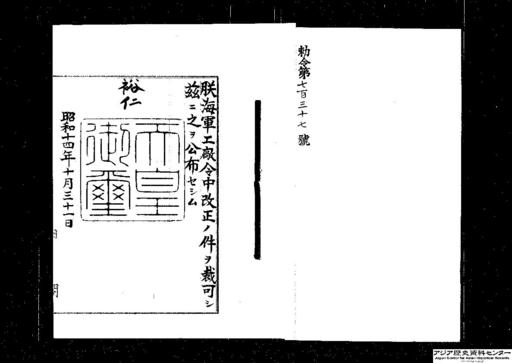 勅令第七百三十七號
朕海軍工廠令中改正ノ件ヲ裁可シ
茲ニ之ヲ公布セシム
裕仁
天皇
御璽
昭和十四年十月三十一日
アジア歴史資料センター
Japan Center for Asian Historical Records